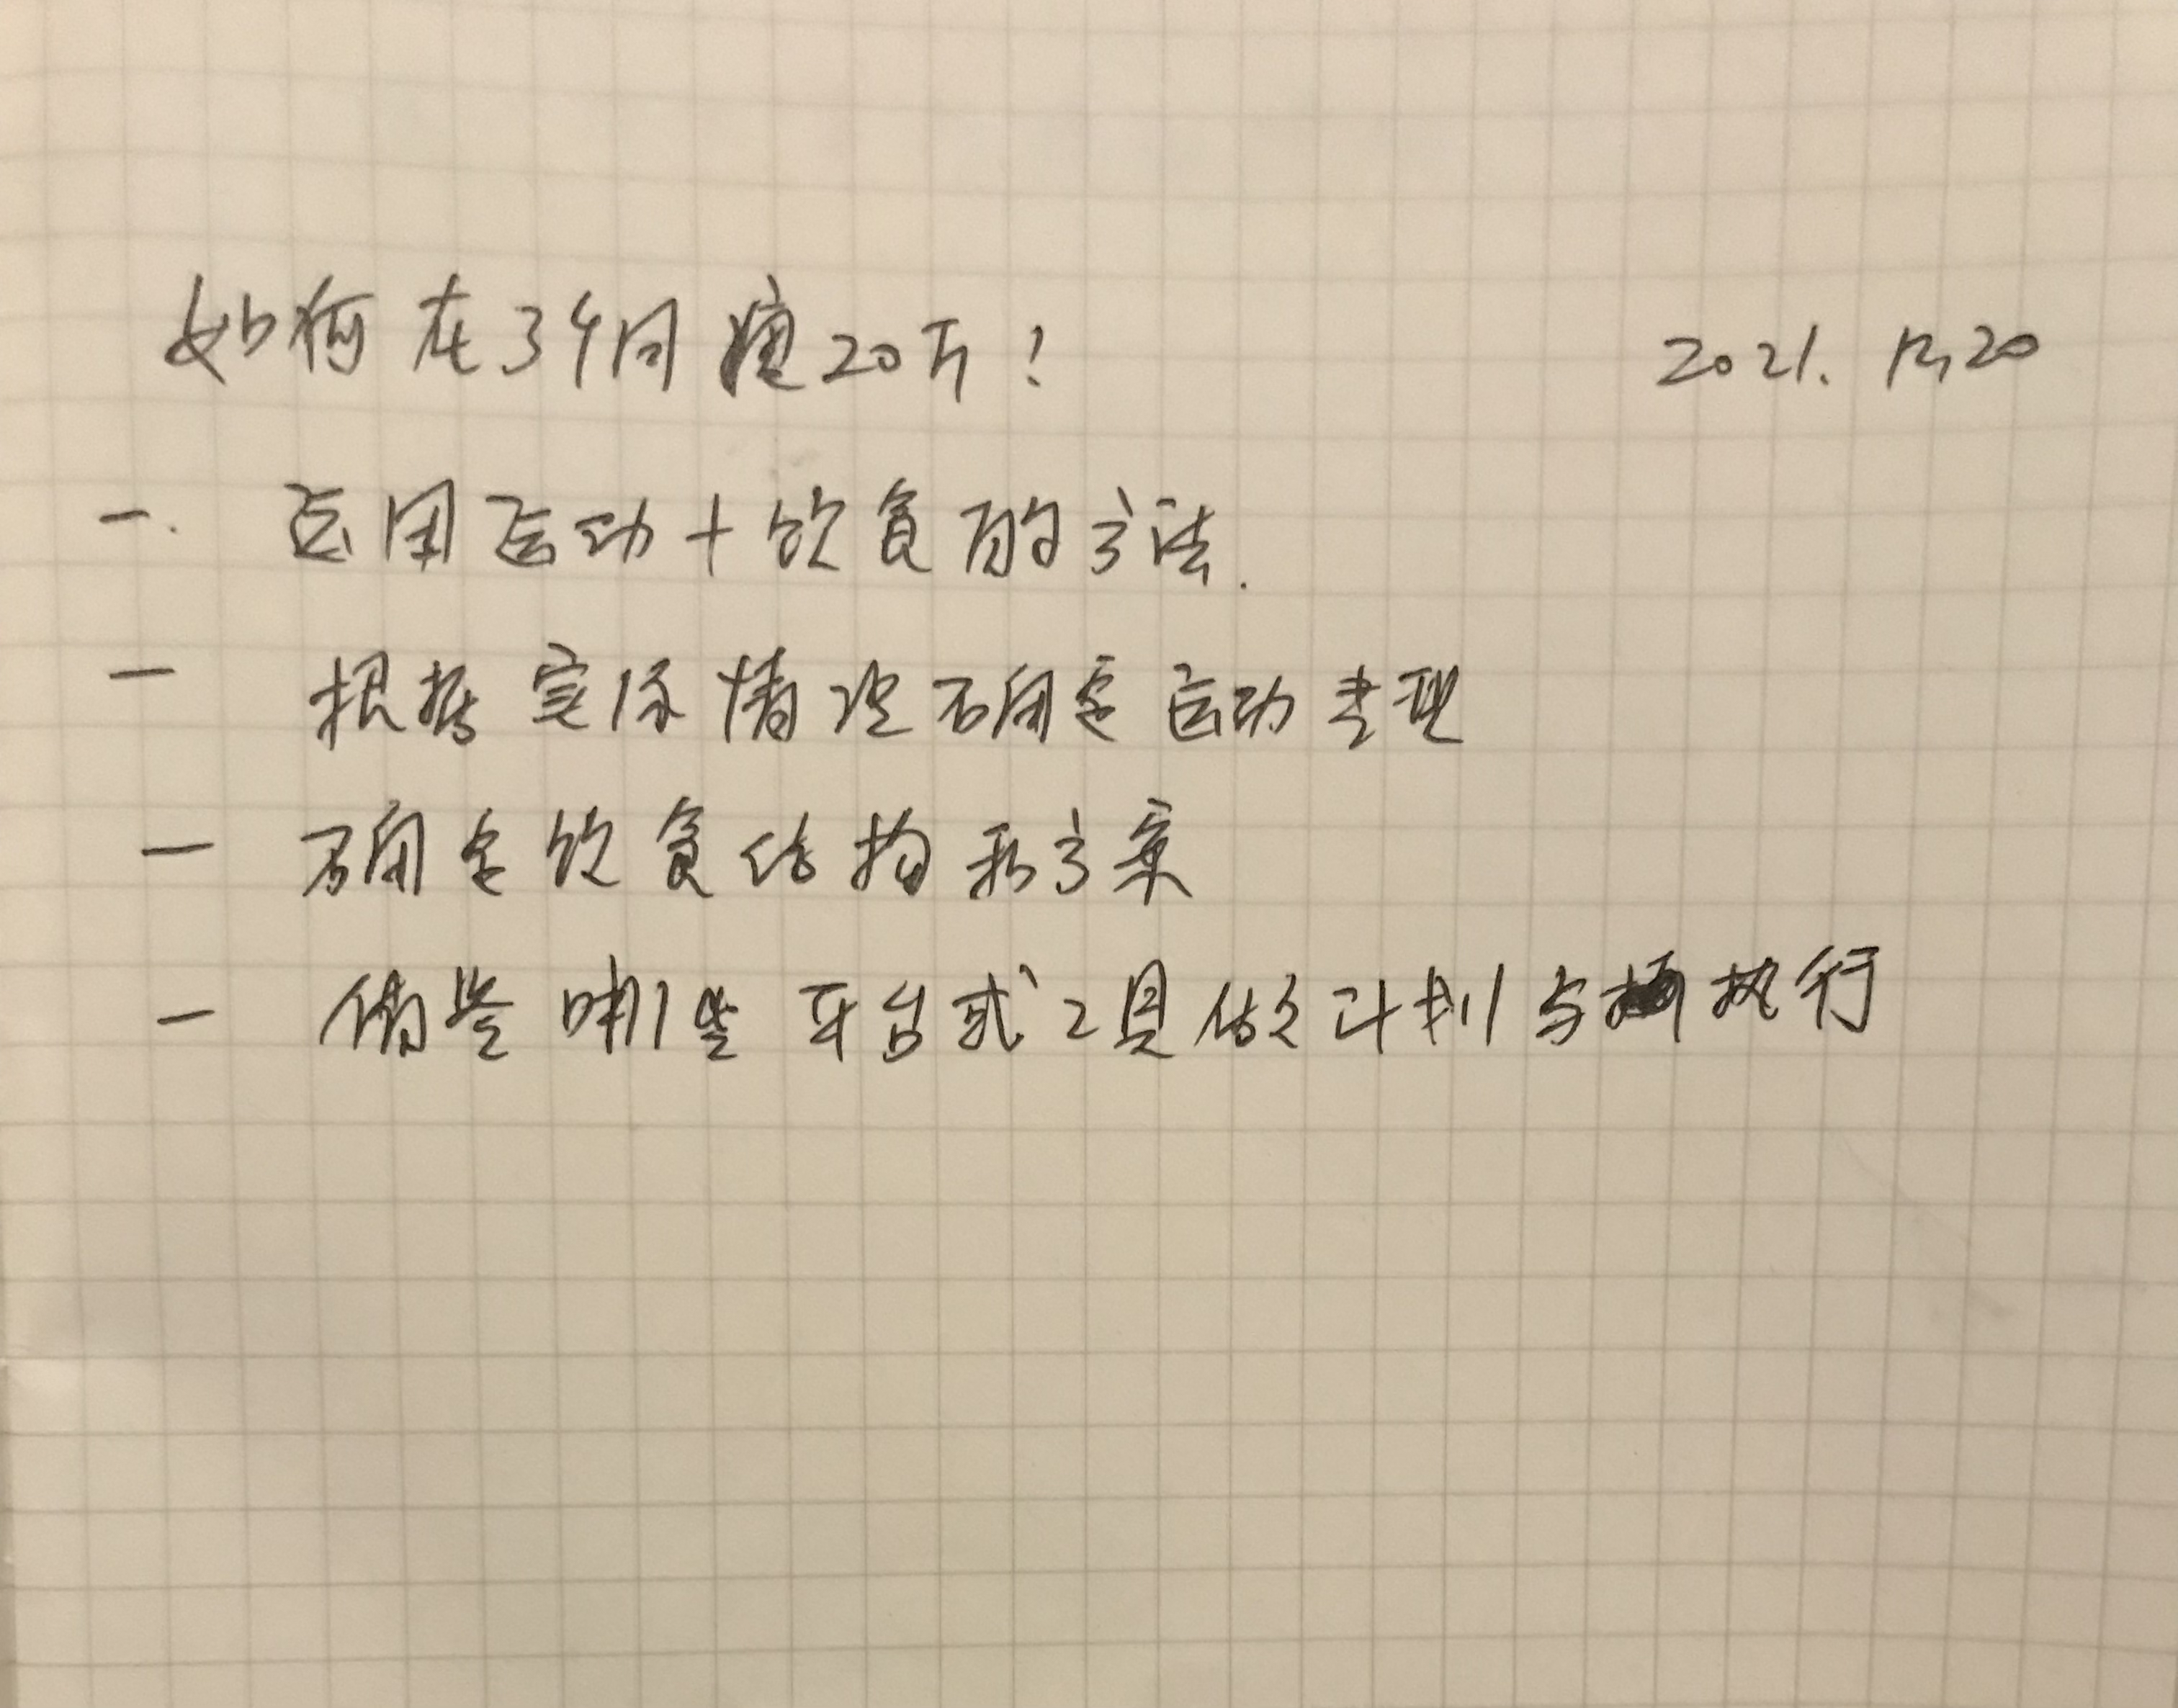 如何在3个月瘦20斤! 2021.12.20
一. 运用运动+饮食的方法.
一 根据实际情况确定运动类型
一 确定饮食结构和方案
一 借鉴哪些平台或工具做计划与执行